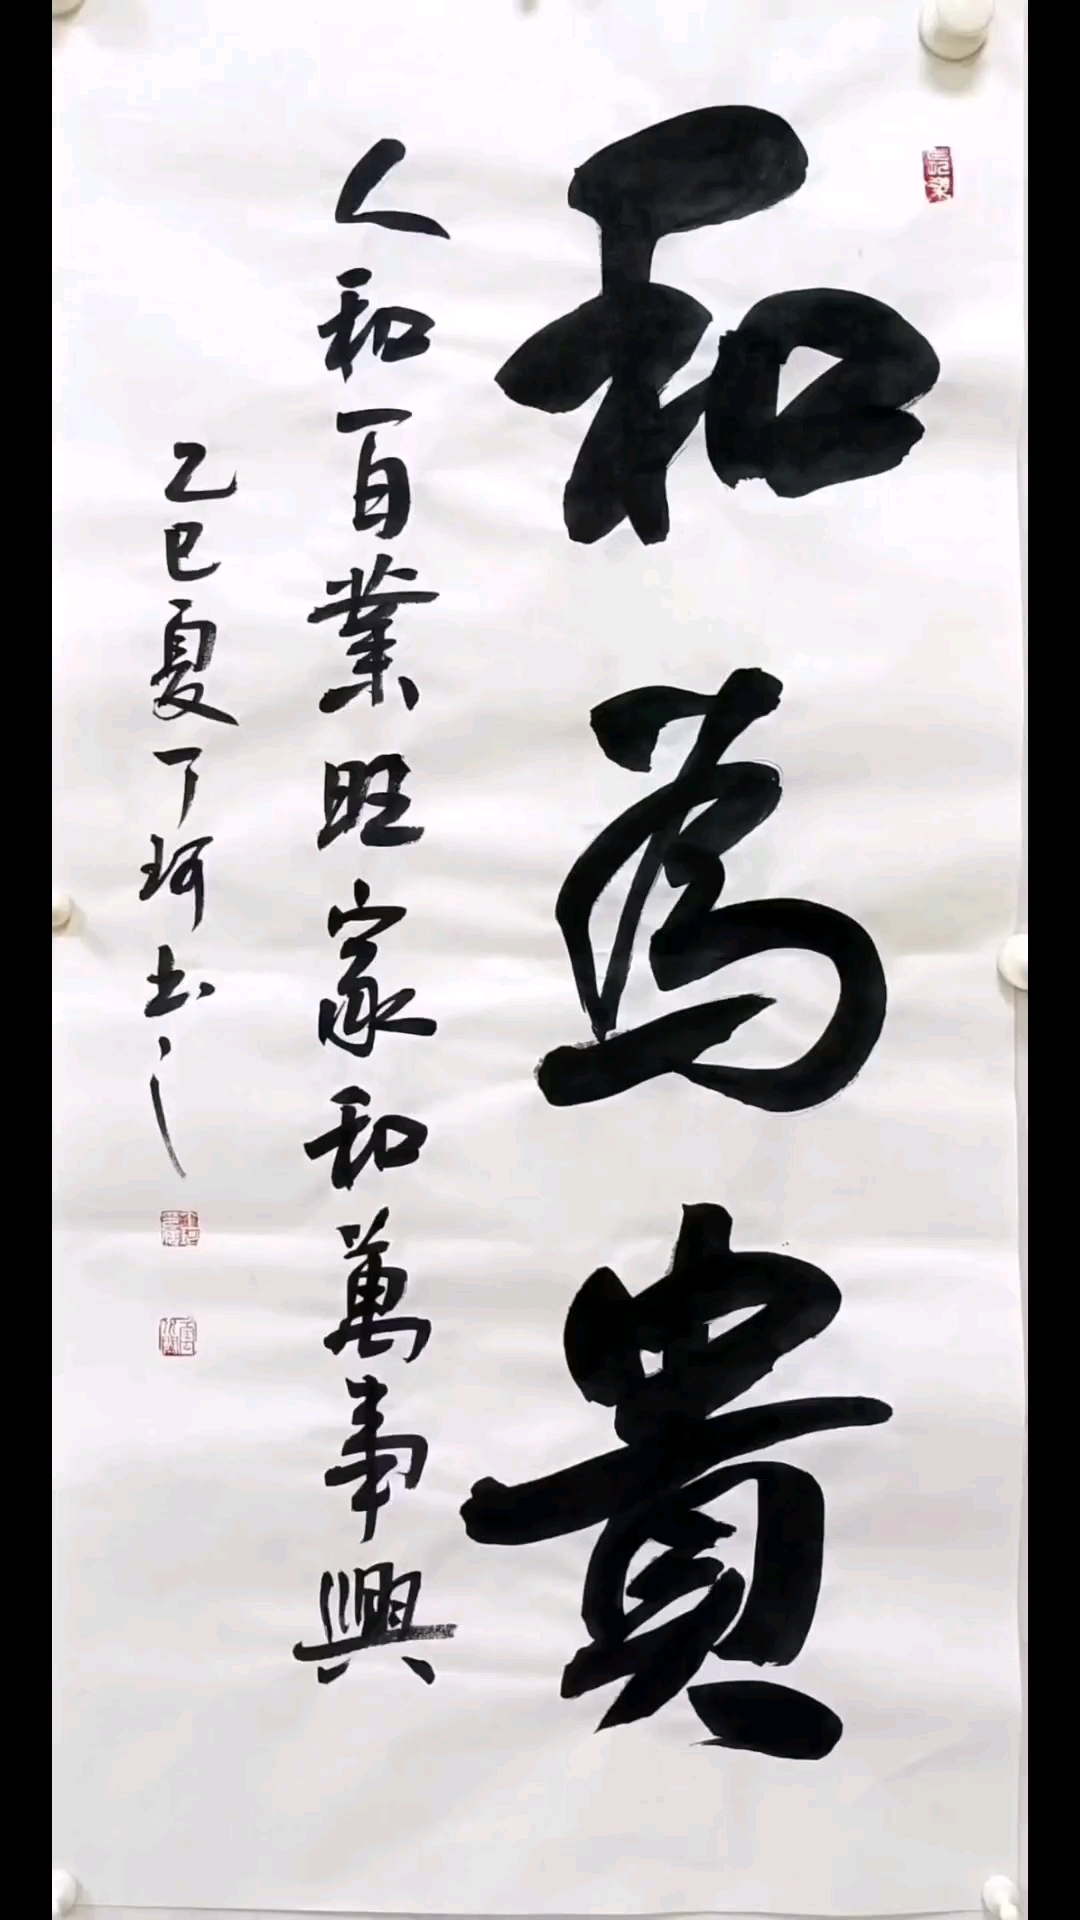 和為貴
人和百業旺家和萬事興
乙巳夏丁珂书之